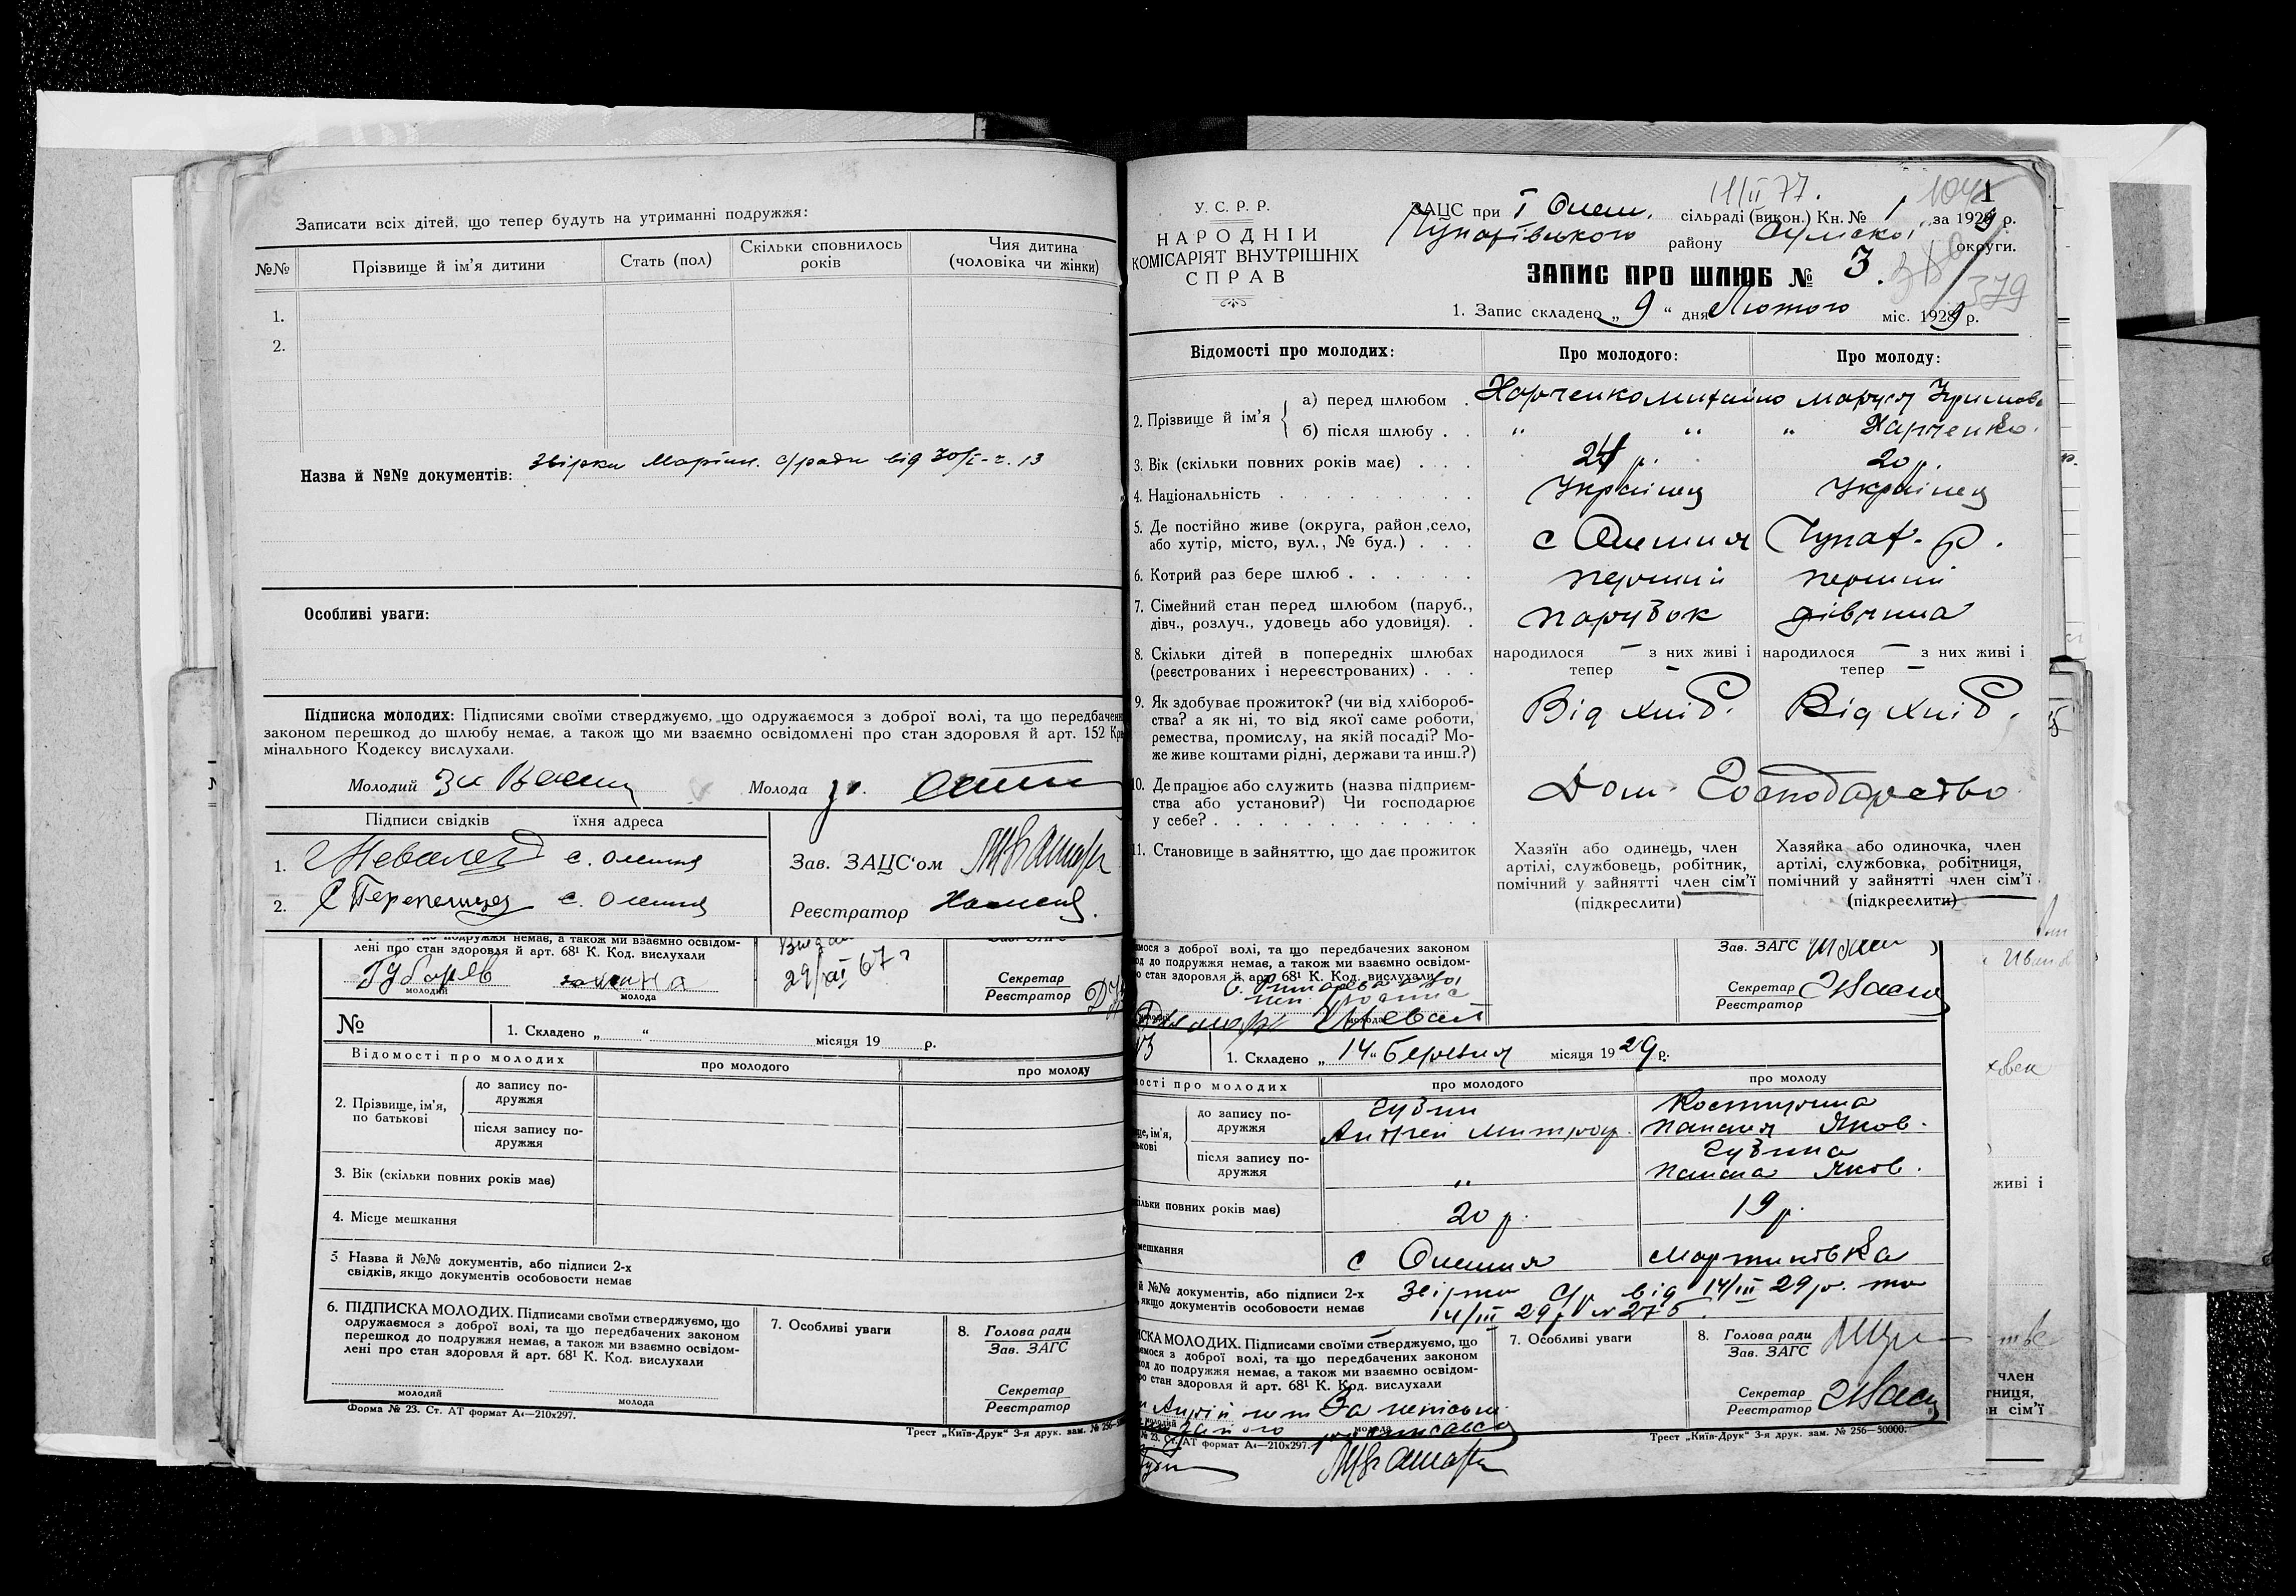 Записати всіх дітей, що тепер будуть на утриманні подружжя:
№№ Прізвище й ім'я дитини Стать (пол) Скільки сповнилось років Чия дитина (чоловіка чи жінки)
1.
2.
Назва й №№ документів: с/ради від 30/I - ч. 13
Особливі уваги:
Підписка молодих: Підписями своїми стверджуємо, що одружаємося з доброї волі, та що передбачених
законом перешкод до шлюбу немає, а також що ми взаємно освідомлені про стан здоровля й арт. 152 Кри
мінального Кодексу вислухали.
Молодий Молода
Підписи свідків їхня адреса
1. с. Олешня
2. Перепелиця с. Олешня
Зав. ЗАЦС'ом
Реєстратор
лені про стан здоровля й арт. 68¹ К. Код. вислухали
молодий молода
29/XI 67 г
Секретар
Реєстратор
№ 1. Складено „ “ місяця 19 р.
Відомості про молодих про молодого про молоду
2. Прізвище, ім'я, по батькові
до запису по-
дружжя
після запису по-
дружжя
3. Вік (скільки повних років має)
4. Місце мешкання
5 Назва й №№ документів, або підписи 2-х
свідків, якщо документів особовости немає
6. ПІДПИСКА МОЛОДИХ. Підписами своїми стверджуємо, що
одружаємося з доброї волі, та що передбачених законом
перешкод до подружжя немає, а також ми взаємно освідом-
лені про стан здоровля й арт. 68¹ К. Код. вислухали
молодий молода
7. Особливі уваги
8. Голова ради
Зав. ЗАГС
Секретар
Реєстратор
Форма № 23. Ст. АТ формат А₄—210х297.
Трест „Київ-Друк“ 3-я друк. зам. № 256—50
11/II 77.
1
У. С. Р. Р.
НАРОДНІЙ
КОМІСАРІЯТ ВНУТРІШНІХ
СПРАВ
ЗАЦС при І Олеш. сільраді (викон.) Кн. № 1 за 1929 р.
Чупахівського району Сумської округи.
ЗАПИС ПРО ШЛЮБ № 3.
379
1. Запис складено „ 9 “ дня Лютого міс. 1929 р.
Відомості про молодих: Про молодого: Про молоду:
2. Прізвище й ім'я
а) перед шлюбом . Харченко Михайло Маруся
б) після шлюбу . . " " " Харченко.
3. Вік (скільки повних років має) . . . 24 р. 20 р.
4. Національність Українец Українец
5. Де постійно живе (округа, район, село,
або хутір, місто, вул., № буд.) . . . с Олешня Чупах. р.
6. Котрий раз бере шлюб . . . . . . перший перший
7. Сімейний стан перед шлюбом (паруб.,
дівч., розлуч., удовець або удовиця). . парубок дівчина
8. Скільки дітей в попередніх шлюбах
(реєстрованих і нереєстрованих) . . .
народилося — з них живі і тепер —
народилося — з них живі і тепер —
9. Як здобуває прожиток? (чи від хлібороб-
ства? а як ні, то від якої саме роботи,
ремества, промислу, на якій посаді? Мо-
же живе коштами рідні, держави та инш.?)
Від хліб. Від хліб.
10. Де працює або служить (назва підприєм-
ства або установи?) Чи господарює
у себе? . . . . . . . . . . . .
Дом. Господарство
11. Становище в зайняттю, що дає прожиток
Хазяїн або одинець, член
артілі, службовець, робітник,
помічний у зайнятті член сім'ї
(підкреслити)
Хазяйка або одиночка, член
артілі, службовка, робітниця,
помічний у зайнятті член сім'ї.
(підкреслити)
ємося з доброї волі, та що передбачених законом
од до подружжя немає, а також ми взаємно освідом-
о стан здоровля й арт. 68¹ К. Код. вислухали
Зав. ЗАГС
Секретар
Реєстратор
1. Складено „ 14 “ Березня місяця 1929 р.
ності про молодих про молодого про молоду
до запису по-
дружжя
Андрей Митроф. Яков.
після запису по-
дружжя
" Яков.
ільки повних років має) 20 р. 19 р.
мешкання с Олешня Мартинівка
й №№ документів, або підписи 2-х
, якщо документів особовости немає
від 14/III 29 р. та
14/III 29 р № 275.
ИСКА МОЛОДИХ. Підписами своїми стверджуємо, що
ємося з доброї волі, та що передбачених законом
од до подружжя немає, а також ми взаємно освідом-
ро стан здоровля й арт. 68¹ К. Код. вислухали
7. Особливі уваги
8. Голова ради
Зав. ЗАГС
Секретар
Реєстратор
№ 23. Ст. АТ формат А₄—210х297.
Трест „Київ-Друк“ 3-я друк. зам. № 256—50000.
живі і
член
тниця,
н сім'ї